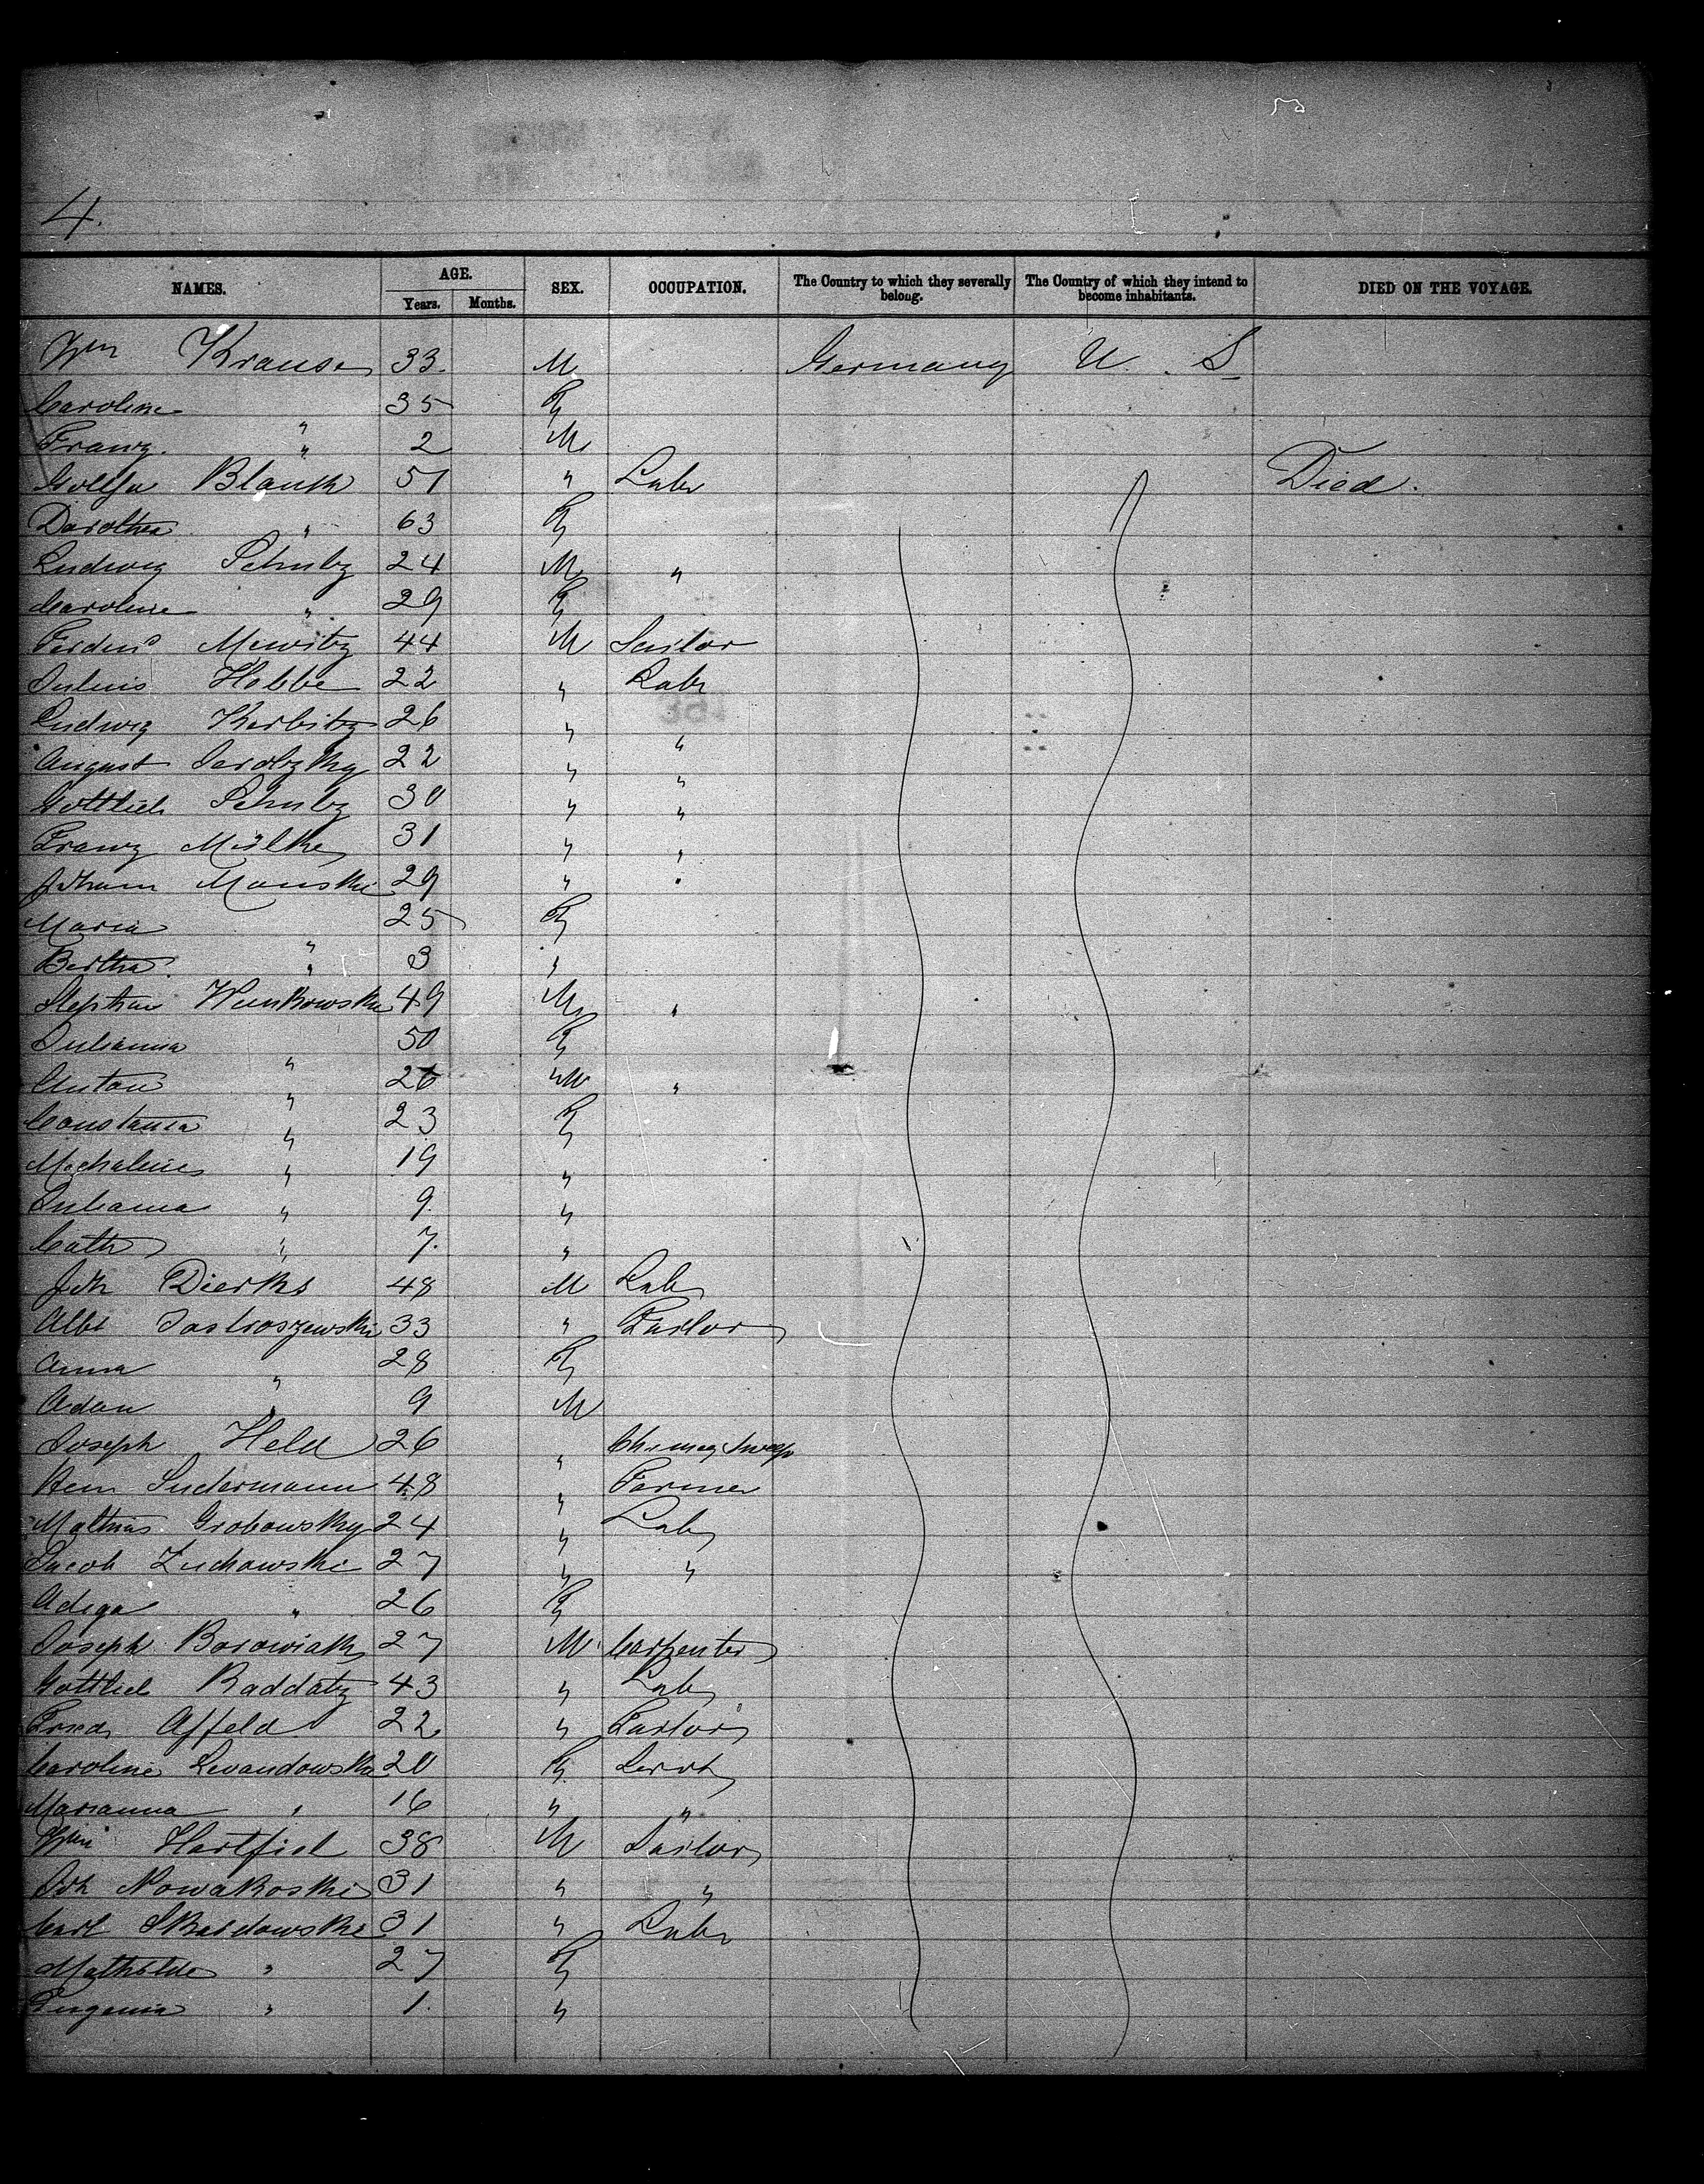 4.
NAMES. AGE. Years. Months. SEX. OCCUPATION. The Country to which they severally belong. The Country of which they intend to become inhabitants. DIED ON THE VOYAGE.
Wm Krause 33 M Germany U. S
Caroline " 35 F
Franz " 2 M
Blank 51 " Labr Died.
Dorothea " 63 F
Ludwig Schulz 24 M "
Caroline " 29 F
Ferdnd 44 M Sailor
Julius Hobbe 22 " Labr
Ludwig Kerbitz 26 " "
August 22 " "
Gottlieb Schulz 30 " "
Franz Mielke 31 " "
Johann Manski 29 " "
Maria " 25 F
Bertha " 3 "
Stephan 49 M "
Julianna " 50 F
Anton " 26 M "
Constantia " 23 F
" 19 "
Julianna " 9 "
Cath " 7 "
Joh Dierks 48 M Lab
Albt Jastroszewski 33 " Tailor
Anna " 28 F
Adam " 9 M
Joseph Held 26 " Chimney Sweep
Hein Sudermann 48 " Farmer
Mathias Grobowsky 24 " Lab
Jacob Zuchowski 27 " "
" 26 F
Joseph Borowiak 27 M Carpenter
Gottlieb Raddatz 43 " Lab
Fried Affeld 22 " Tailor
Caroline Levandowska 20 F Servt
Marianna " 16 " "
Wm Hartfiel 38 M Tailor
Joh Nowakoski 31 " "
Carl Skardowski 31 " Labr
Mathilde " 27 F
Eugenia " 1. "